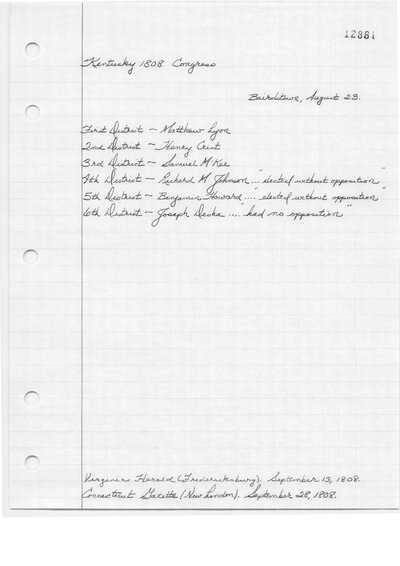 12881
Kentucky 1808 Congress
Bairdstown, August 23.
First District - Matthew Lyon
2nd District - Henry Crist
3rd District - Samuel McKee
4th District - Richard M. Johnson .... "elected without opposition"
5th District - Benjamin Howard .... "elected without opposition"
6th District - Joseph Desha .... "had no opposition"
Virginia Herald (Fredericksburg). September 13, 1808.
Connecticut Gazette (New London). September 28, 1808.